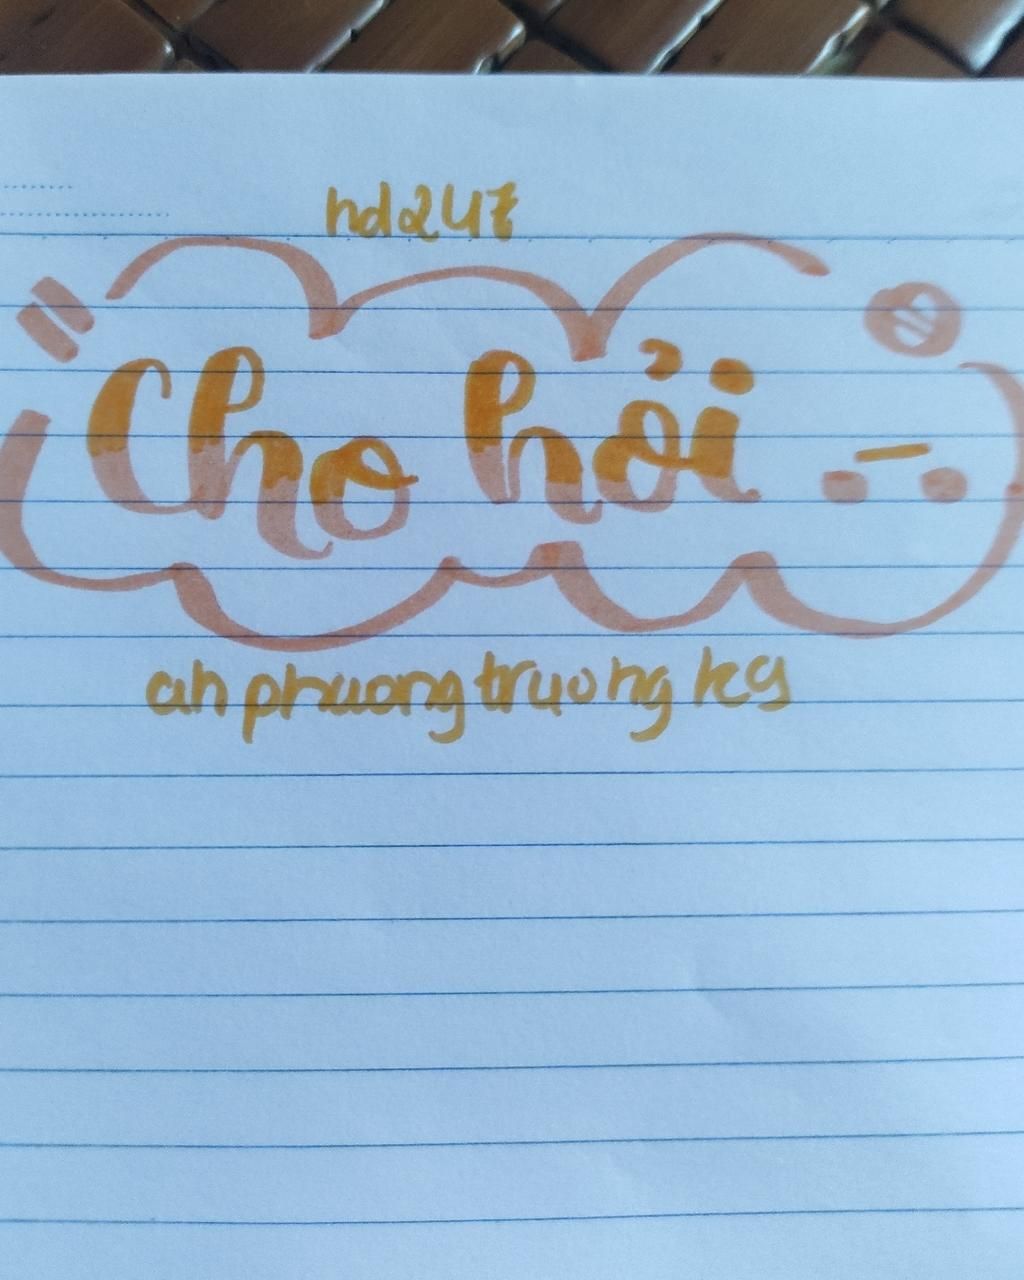 hd247
Cho hỏi
anhphuongtruong kg